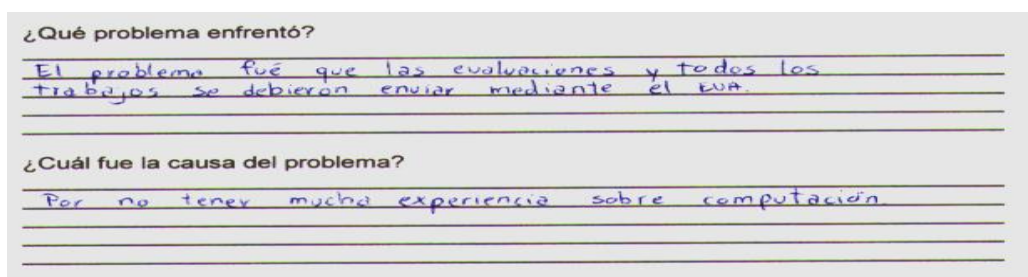 ¿Qué problema enfrentó?
El problema fué que las evaluaciones y todos los
trabajos se debieron enviar mediante el EVA.
¿Cuál fue la causa del problema?
Por no tener mucha experiencia sobre computación